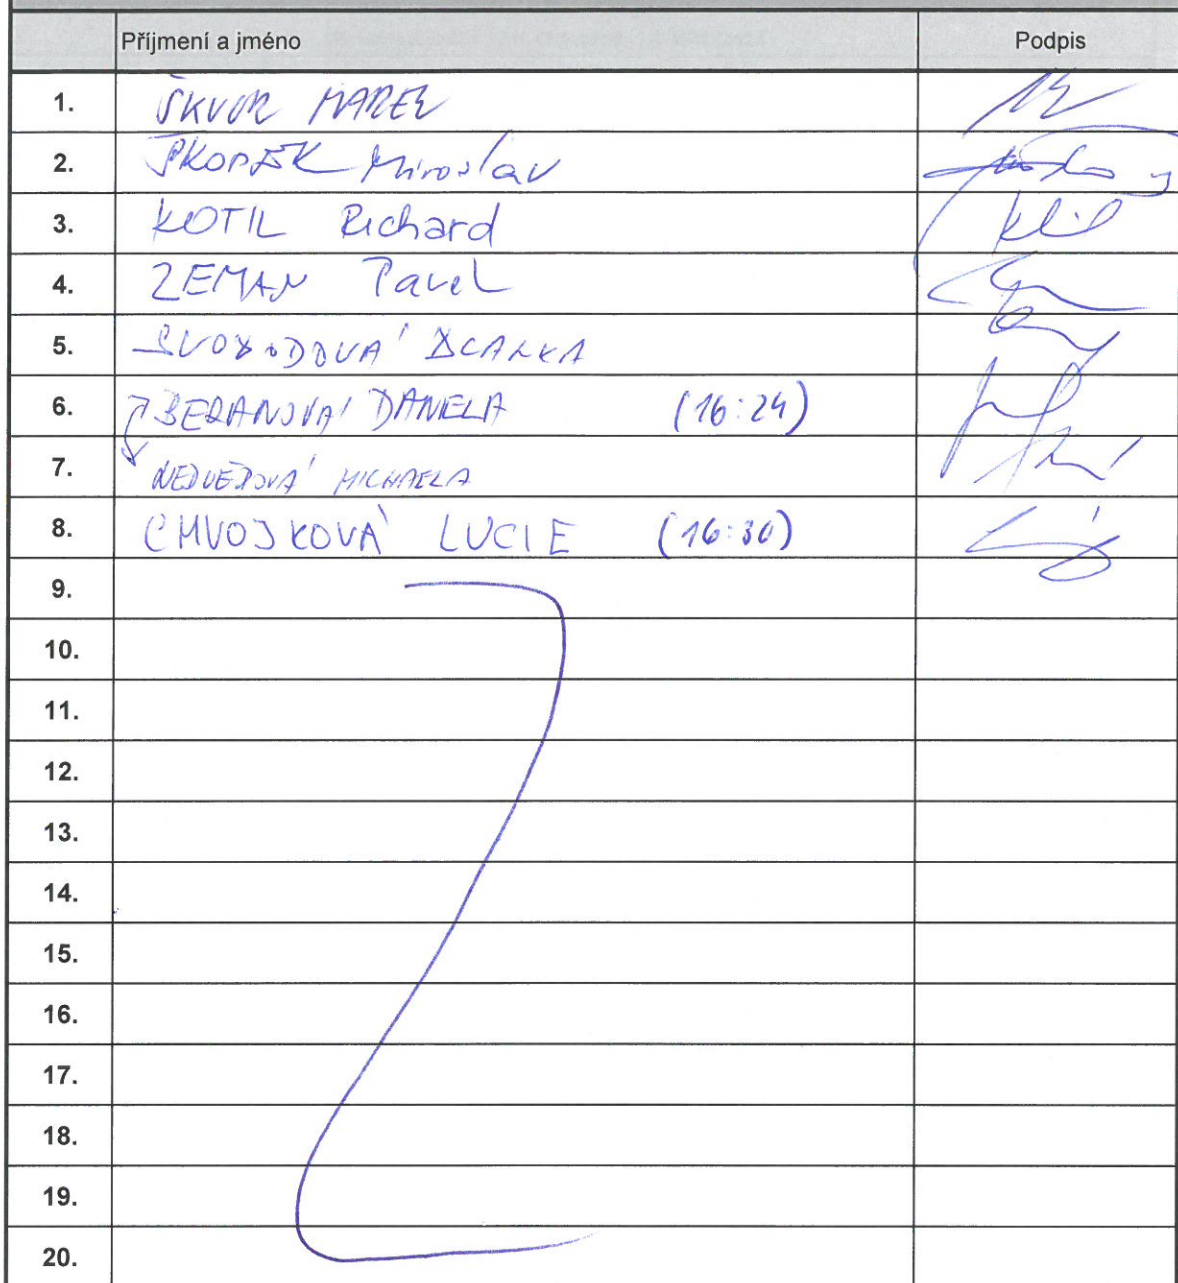 Příjmení a jméno Podpis
1. ŠKVOR MAREK
2. ŠKOPEK Miroslav
3. KOTIL Richard
4. ZEMAN Pavel
5. SVOBODOVÁ BLANKA
6. BERANOVÁ DANIELA (16:24)
7. NEDVĚDOVÁ MICHAELA
8. CHVOJKOVÁ LUCIE (16:30)
9.
10.
11.
12.
13.
14.
15.
16.
17.
18.
19.
20.